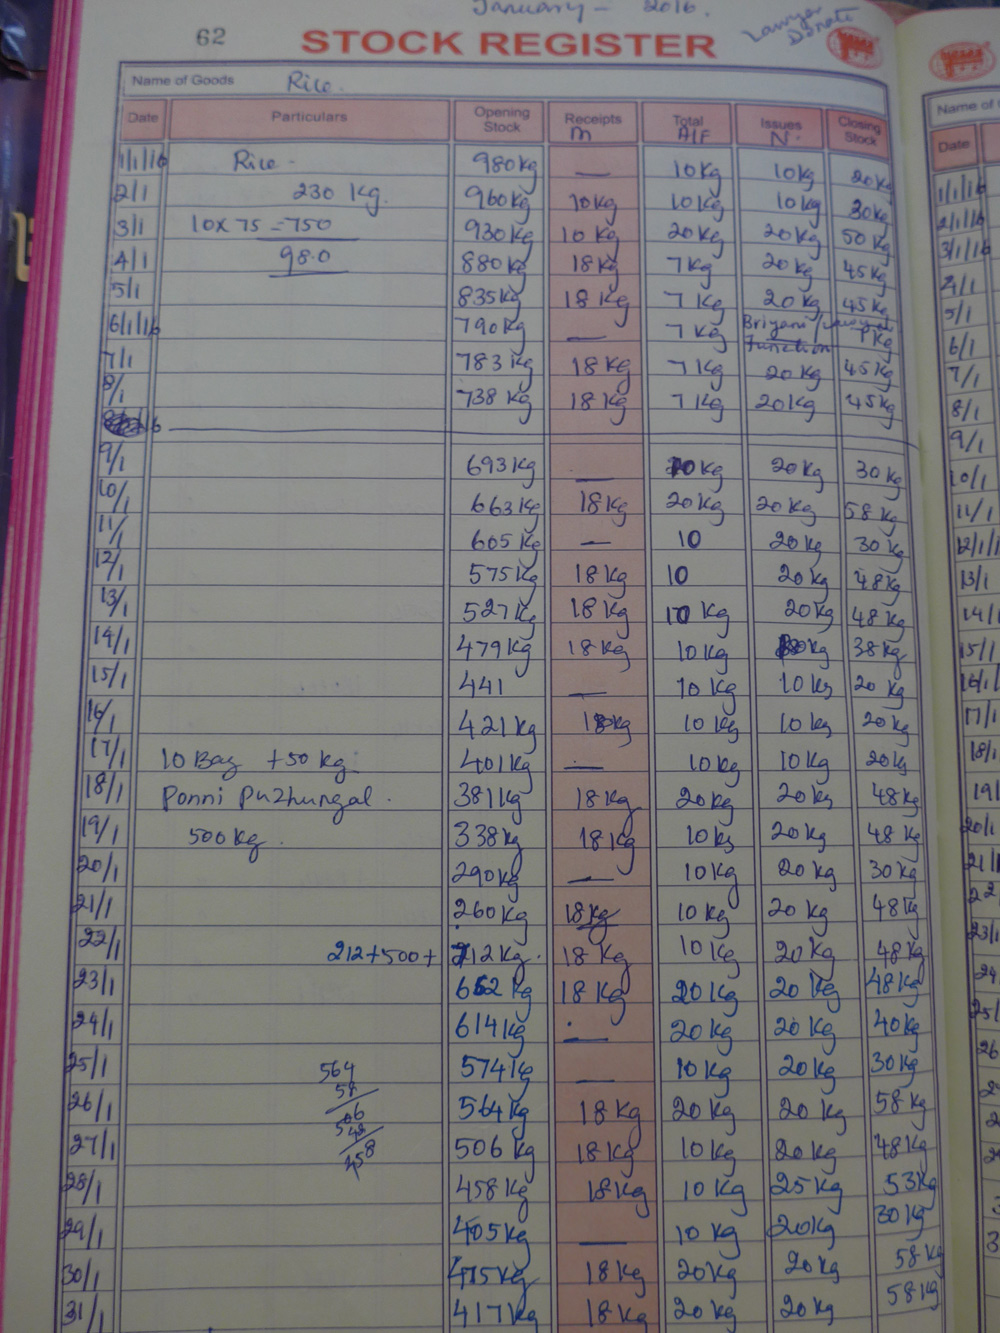 January - 2016.
62 STOCK REGISTER
Name of Goods Rice.
Date Particulars Opening Stock Receipts M Total A/F Issues N. Closing Stock
1/1/16 Rice. 980kg — 10kg 10kg 20kg
2/1 230 Kg. 960kg 10kg 10kg 10kg 30kg
3/1 10x75=750 930kg 10kg 20kg 20kg 50kg
4/1 980 880kg 18kg 7kg 20kg 45kg
5/1 835kg 18kg 7kg 20kg 45kg
6/1/16 790kg — 7kg Briyani function 7kg
7/1 783kg 18kg 7kg 20kg 45kg
8/1 738kg 18kg 7kg 20kg 45kg
9/1 693kg — 10kg 20kg 30kg
10/1 663kg 18kg 20kg 20kg 58kg
11/1 605kg — 10 20kg 30kg
12/1 575kg 18kg 10 20kg 48kg
13/1 527kg 18kg 10kg 20kg 48kg
14/1 479kg 18kg 10kg 38kg
15/1 441 — 10kg 10kg 20kg
16/1 421kg 10kg 10kg 20kg
17/1 10 Bag +50 kg. 401kg — 10kg 10kg 20kg
18/1 Ponni Puzhungal. 381kg 18kg 20kg 20kg 48kg
19/1 500kg. 338kg 18kg 10kg 20kg 48kg
20/1 290kg — 10kg 20kg 30kg
21/1 260kg 18kg 10kg 20kg 48kg
22/1 212+500+ 712kg. 18kg 10kg 20kg 48kg
23/1 662kg 18kg 20kg 20kg 48kg
24/1 614kg — 20kg 20kg 40kg
25/1 574kg — 10kg 20kg 30kg
564
58
26/1 564kg 18kg 20kg 20kg 58kg
506
48
27/1 506kg 18kg 10kg 20kg 48kg
458
28/1 458kg 18kg 10kg 25kg 53kg
29/1 405kg — 10kg 20kg 30kg
30/1 475kg 18kg 20kg 20kg 58kg
31/1 417kg 18kg 20kg 20kg 58kg
Name of
Date
1/1/16
2/1/16
3/1/16
4/1
5/1
6/1
7/1
8/1
9/1
10/1
11/1
12/1/1
13/1
14/1
15/1
16/1
17/1
18/1
191
20/1
21/1
22
23/1
24
25/
26